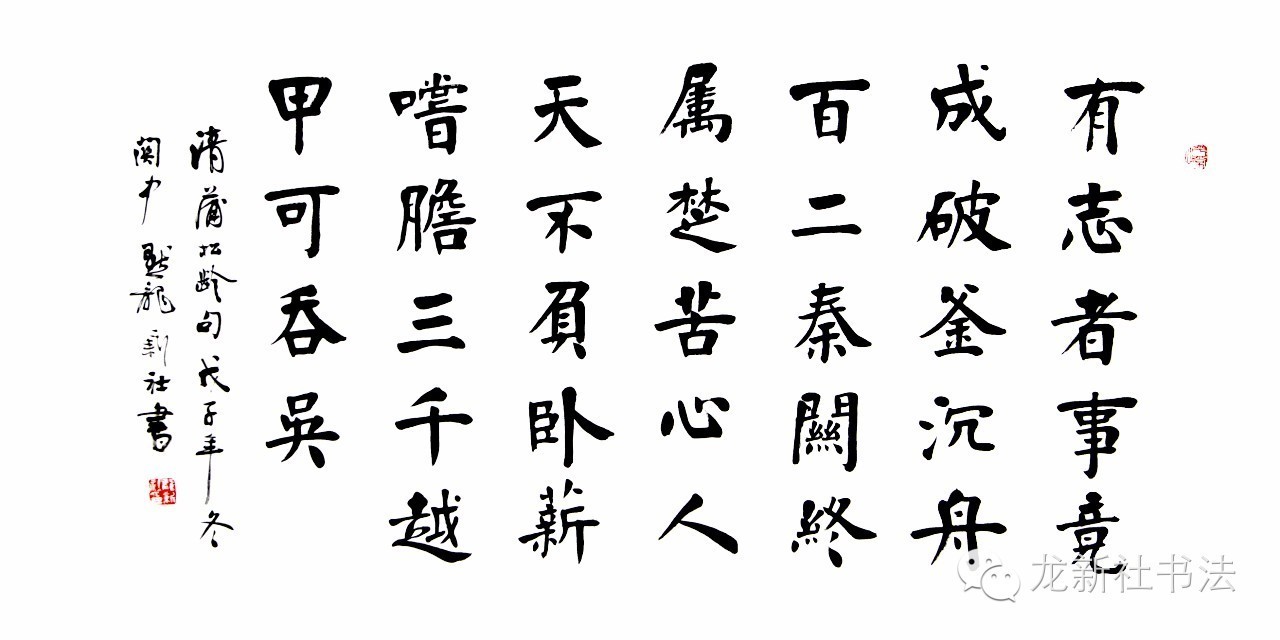 有志者事竟
成破釜沉舟
百二秦關終
属楚苦心人
天不負卧薪
嚐膽三千越
甲可吞吳
清蒲松齡句戊子年冬
関中龍新社書
龙新社书法